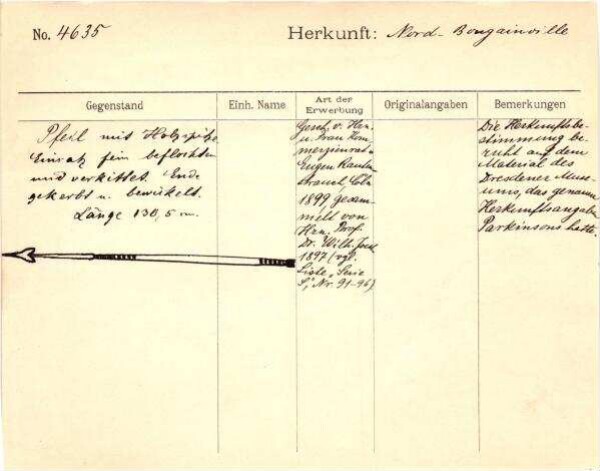 No. 4635
Herkunft: Nord-Bougainville
Gegenstand
Einh. Name
Art der
Erwerbung
Originalangaben
Bemerkungen
Pfeil mit Holzspitze
Einsatz fein beflochten
und verkittet. Ende
gekerbt u. bewickelt.
Länge 130,5 cm.
Gesch. v. Hrn.
u. Frau Kom
merzienrat
Eugen Rauten
strauch, Cöln
1899 gesam
melt von
Hrn. Prof.
Dr. Wilh. Joest
1897 (vgl.
Liste, Serie
S, Nr. 91-96)
Die Herkunftsbe-
stimmung be-
ruht auf dem
Material des
Dresdener Muse-
ums, das genaue
Herkunftsangaben
Parkinsons hatte.